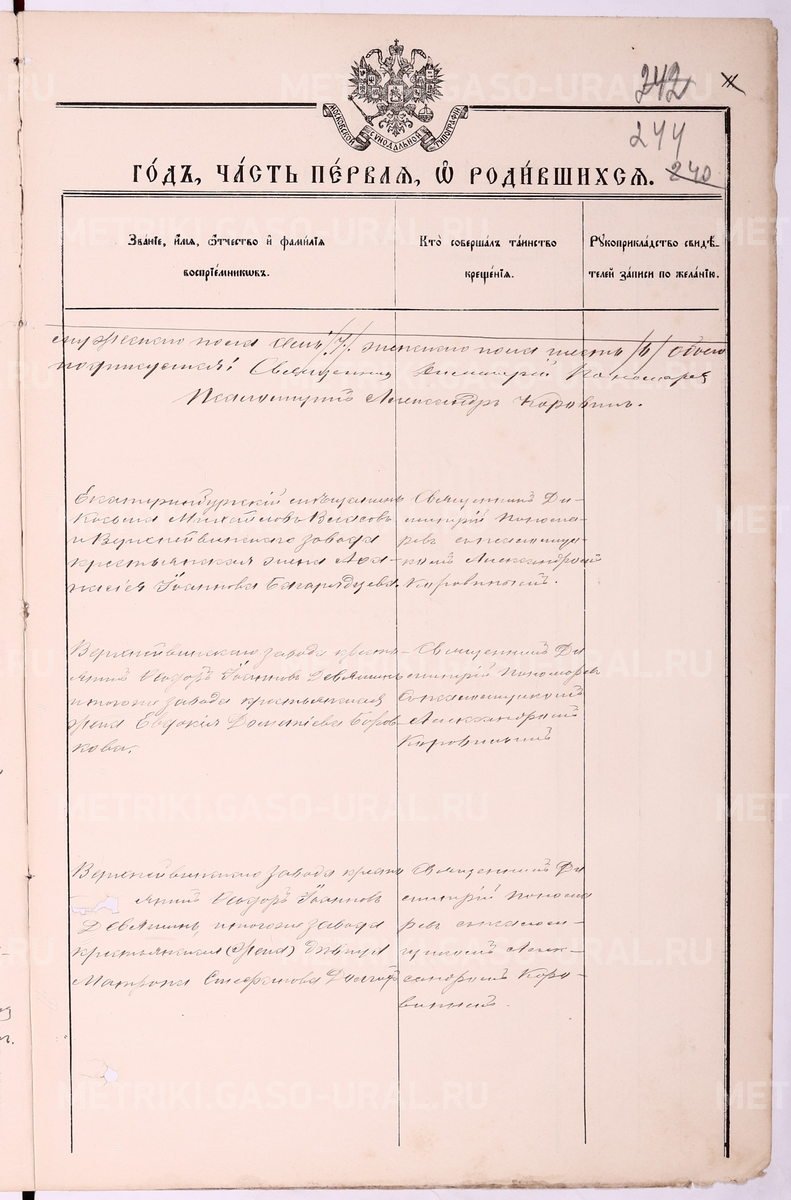 242
244
240
МОСКОВСКОЙ СѴНОДАЛЬНОЙ ТИПОГРАФІИ
ГО́ДЪ, ЧА́СТЬ ПЕ́РВАѦ, Ѽ РОДИ́ВШИХСѦ.
Зва́нїе, и҆́мѧ, ѻ҆́тчество и҆ фами́лїѧ
воспрїе́мникѡвъ.
Кто̀ соверша́лъ та́инство
креще́нїѧ.
Рꙋкоприкла́дство свидѣ́-
телей за́писи по жела́нїю.
мужескаго пола семь /7/. женскаго пола шесть /6/ обоего
Священник Димитрій Пономарев
Псаломщик Александръ Коровинъ.
Екатеринбургскій мѣщанинъ
Косьма Михайловъ Власовъ
и Верхнейвинскаго завода
крестьянская жена Афа-
насія Іоаннова Багарядцева.
Священникъ Ди-
митрій Понома-
ревъ съ псаломщи-
комъ Александромъ
Коровинымъ.
Верхнейвинскаго завода кресть-
янинъ Ѳеодоръ Іоанновъ Девяшинъ
и того же завода крестьянская
жена Евдокія Дометіева Боров-
кова.
Священникъ Ди
митрій Пономаревъ
съ псаломщикомъ
Александромъ
Коровинымъ
Верхнейвинскаго завода кресть
янинъ Ѳеодоръ Іоанновъ
Девяшинъ, и того же завода
крестьянская (жена) дѣвица
Матрона Стефанова
Священникъ Ди
митрій Понома
ревъ съ псалом-
щикомъ Алек-
сандромъ Коро-
винымъ.
METRIKI.GASO-URAL.RU